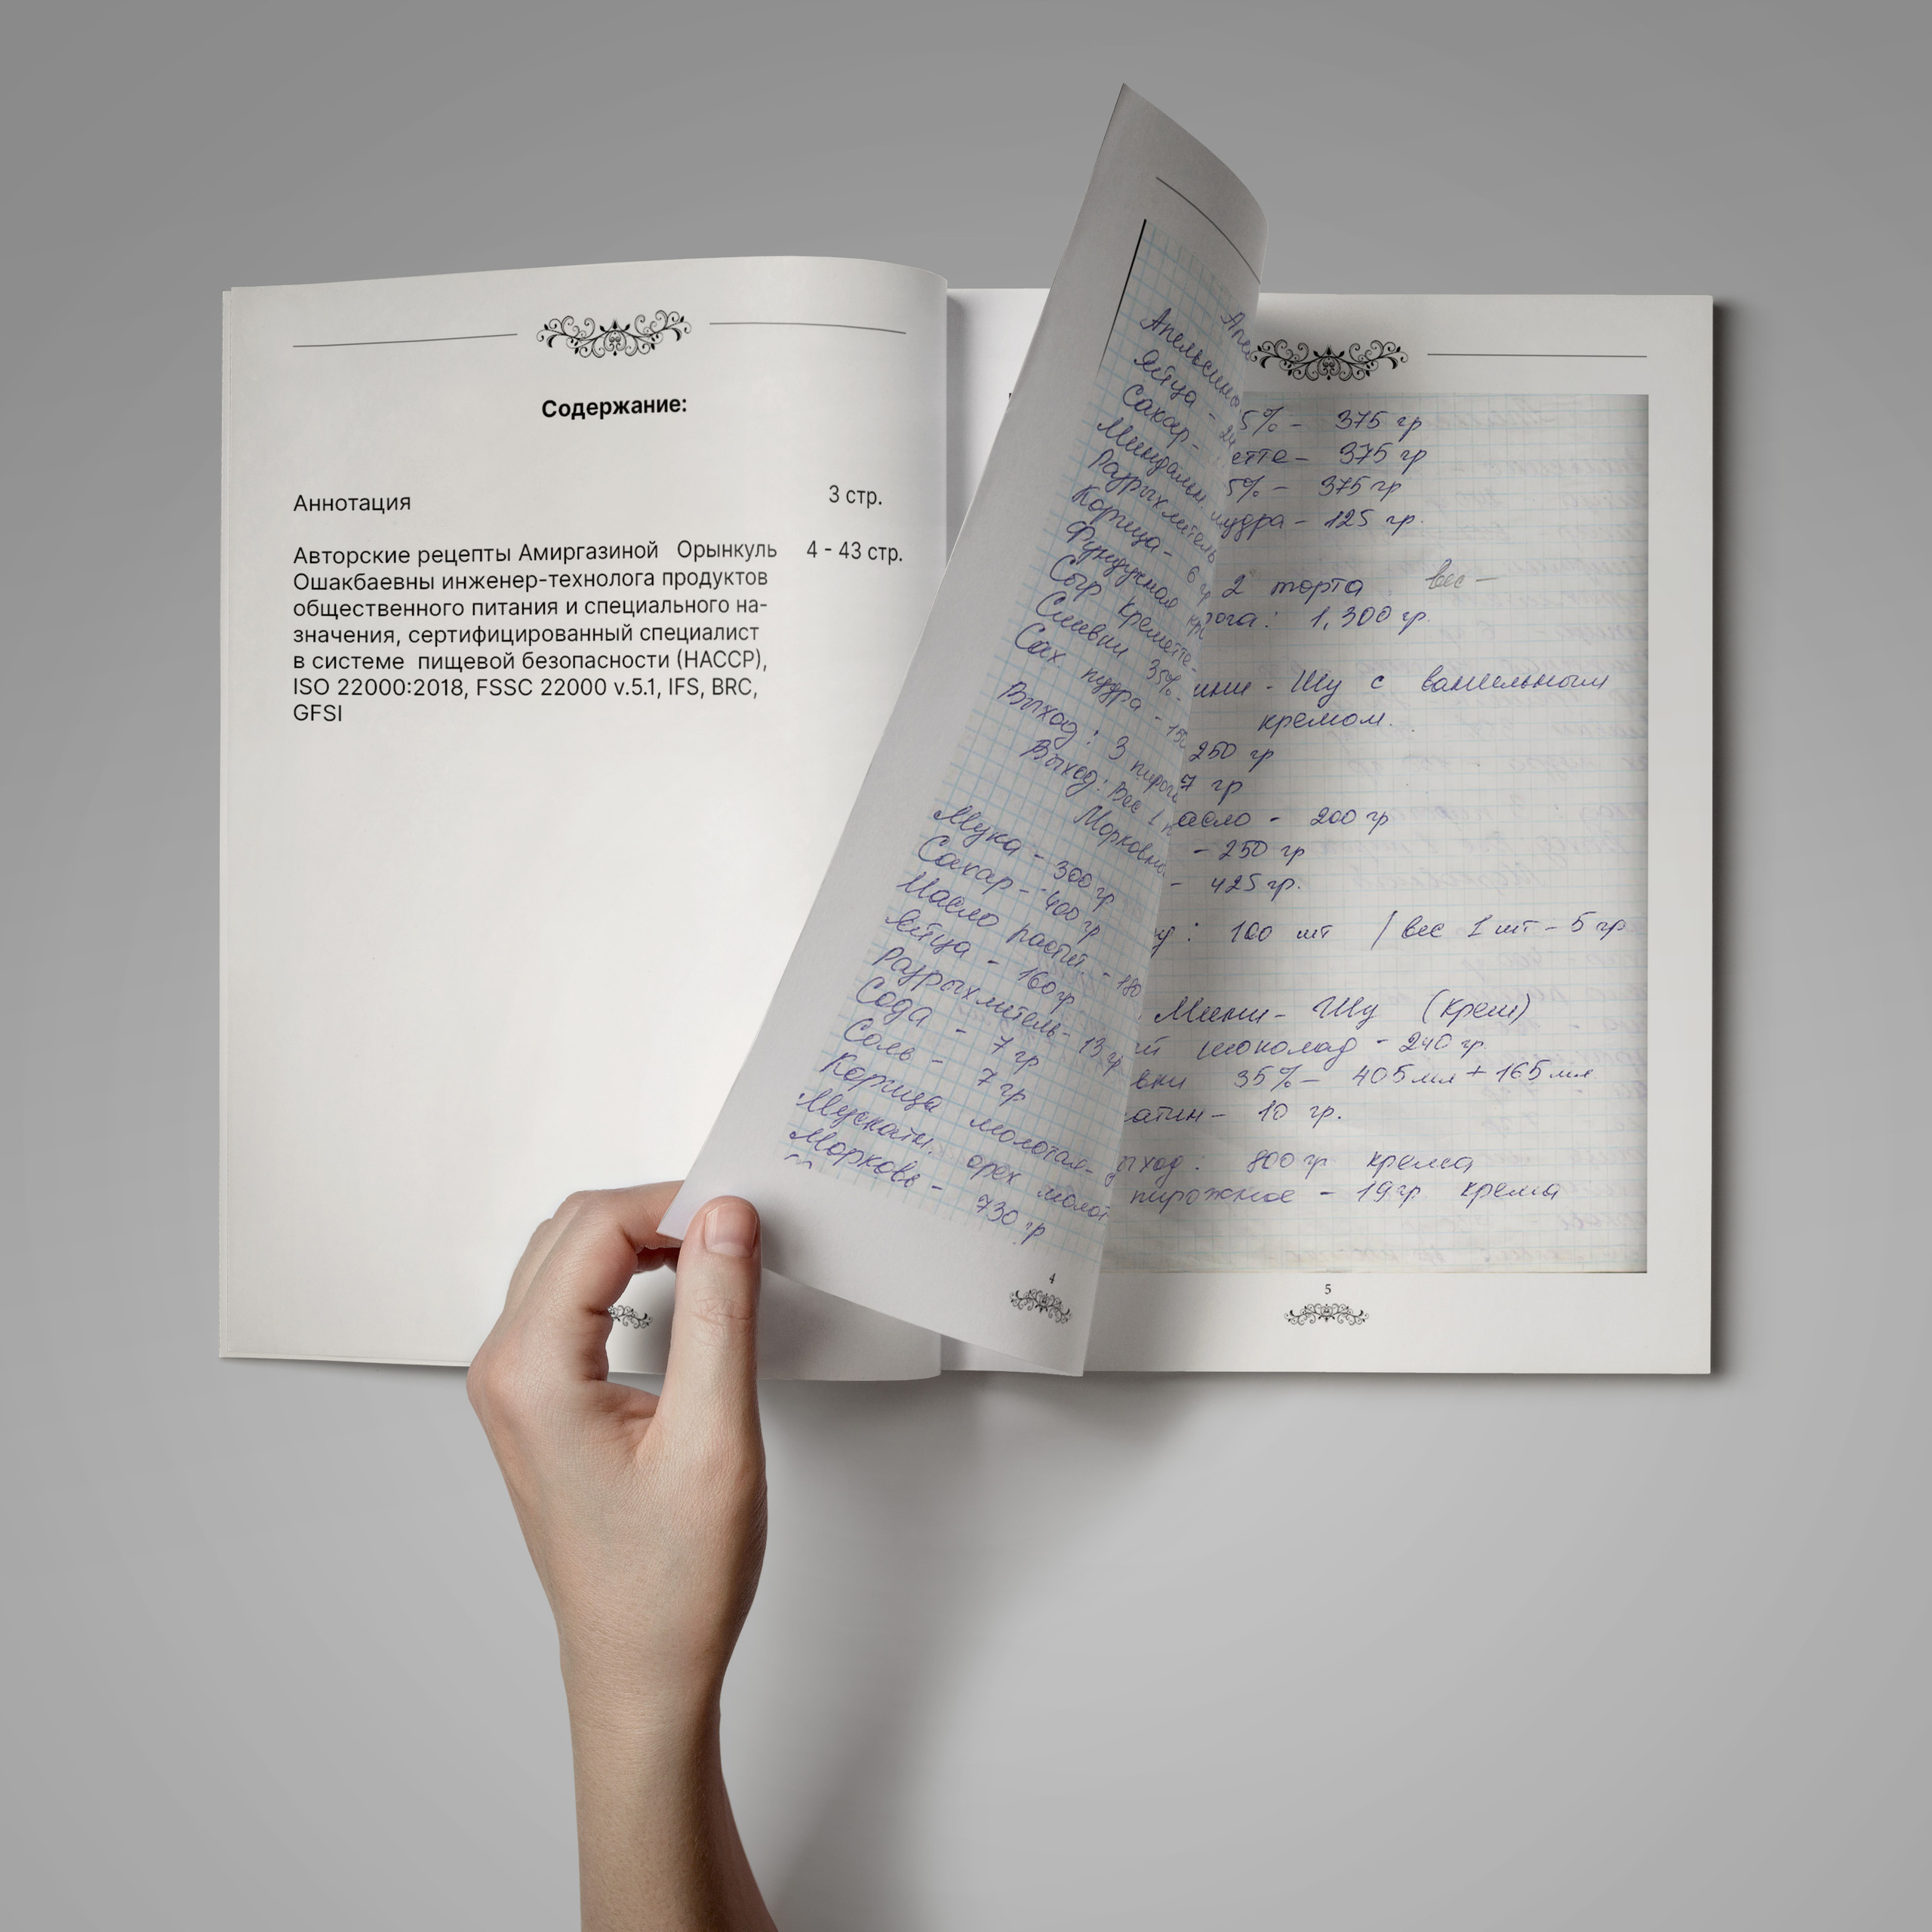 Содержание:
Аннотация 3 стр.
Авторские рецепты Амиргазиной Орынкуль 4 - 43 стр.
Ошакбаевны инженер-технолога продуктов
общественного питания и специального на-
значения, сертифицированный специалист
в системе пищевой безопасности (НАССР),
ISO 22000:2018, FSSC 22000 v.5.1, IFS, BRC,
GFSI
Яйца -
Сахар -
Миндальн.
Разрыхлитель
Корица - 6 гр
Фундучная
Сыр креметте -
Сливки 35% -
Сах пудра - 150
Выход: 3 пирога
Выход: Вес 1
Мука - 300 гр
Сахар - 400 гр
Масло растит - 180
Яйца - 160 гр
Разрыхлитель - 13 гр
Сода - 7 гр
Соль - 7 гр
Корица молотая -
Мускатн. орех молот
Морковь - 730 гр
4
5% - 375 гр
етте - 375 гр
5% - 375 гр
пудра - 125 гр.
2 торта вес -
рога: 1,300 гр.
ини - Шу с ванильным
кремом.
250 гр
7 гр
асло - 200 гр
- 250 гр
- 425 гр.
д: 100 шт / вес 1 шт - 5 гр
Мини - Шу (крем)
й шоколад - 240 гр.
вки 35% - 405 мл + 165 мл
атин - 10 гр.
ыход: 800 гр крема
пирожное - 19 гр. крема
5